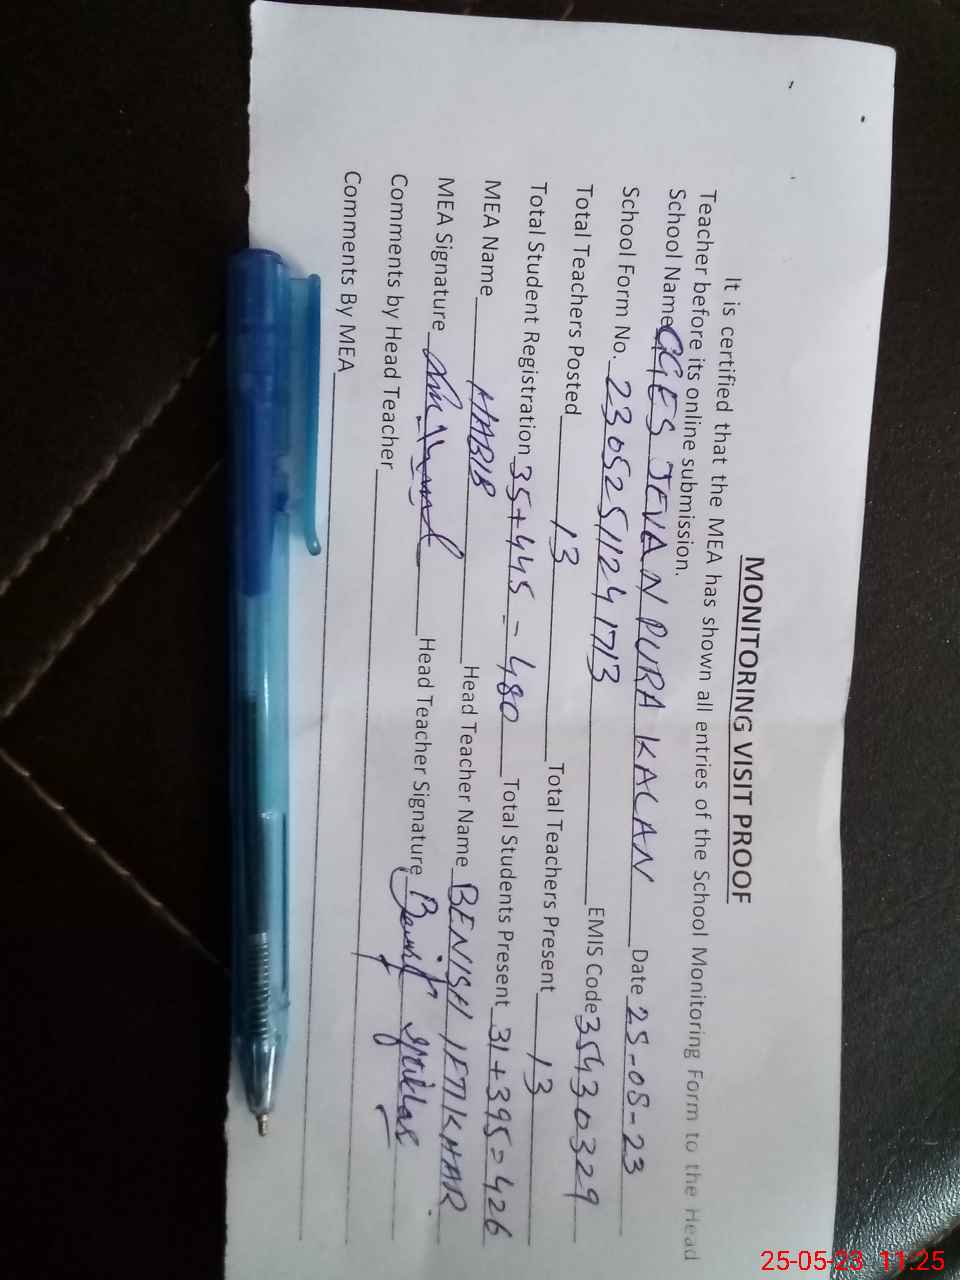 MONITORING VISIT PROOF
It is certified that the MEA has shown all entries of the School Monitoring Form to the Head
Teacher before its online submission.
School Name GGES JEVAN PURA KALAN Date 25-05-23
School Form No. 23052511241713 EMIS Code 35430329
Total Teachers Posted 13 Total Teachers Present 13
Total Student Registration 35+445 = 480 Total Students Present 31+395=426
MEA Name HABIB Head Teacher Name BENISH IFTIKHAR
MEA Signature Head Teacher Signature Benish Iftikhar
Comments by Head Teacher
Comments By MEA
25-05-23 11:25